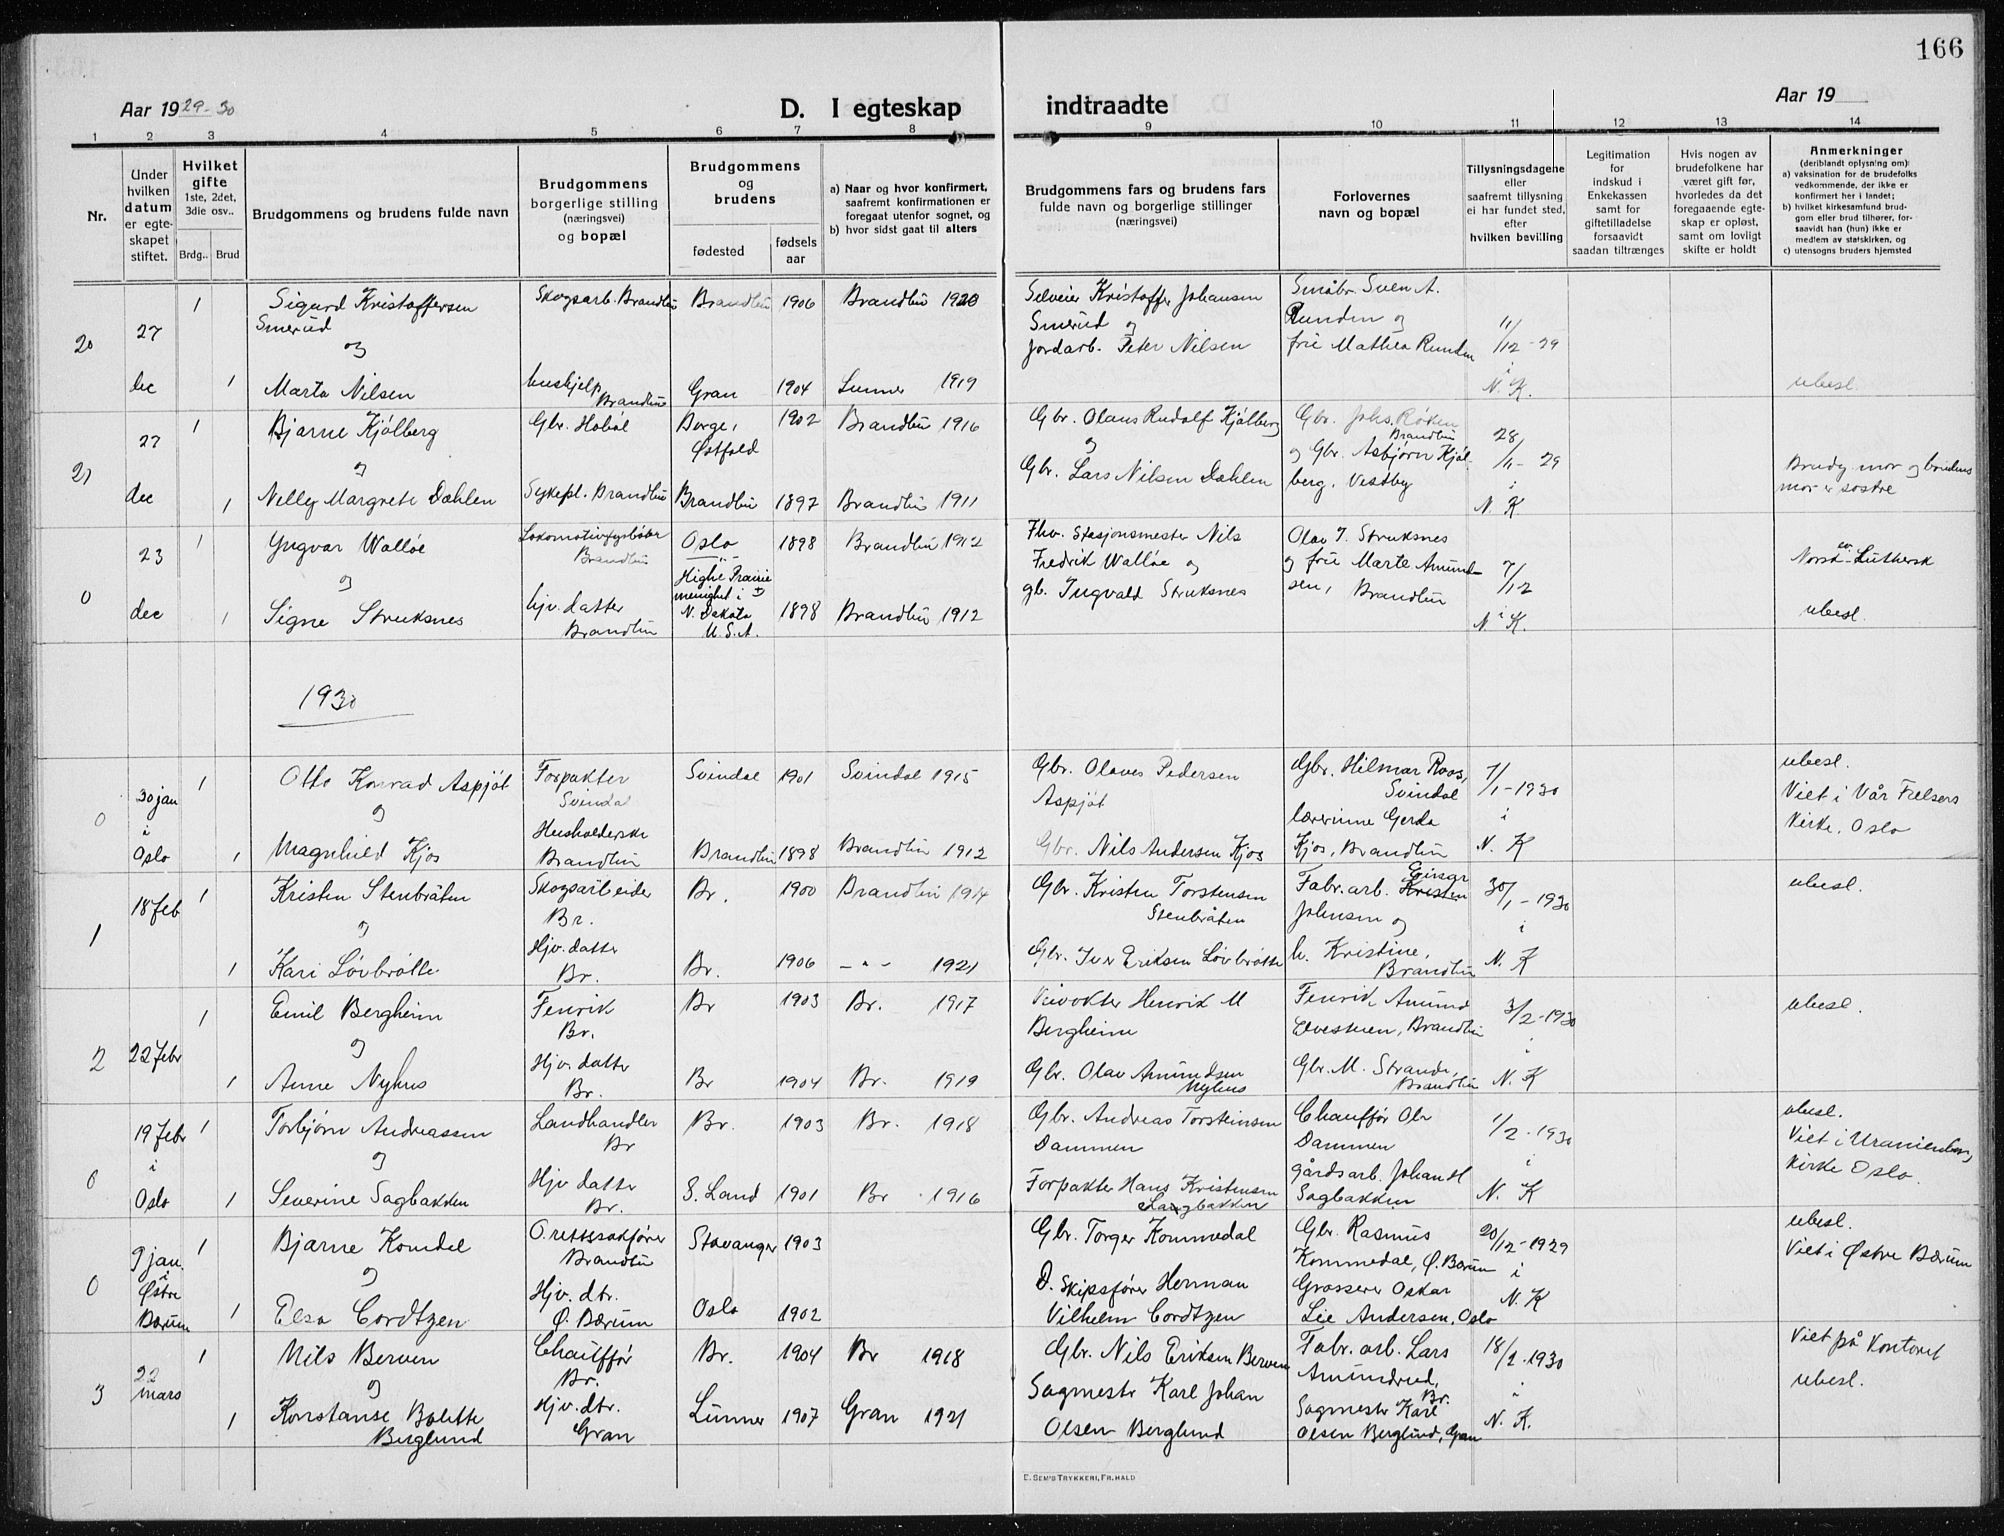 166
Aar 1929-30
D. I egteskap
indtraadte
Aar 19
1 2 3 4 5 6 7 8 9 10 11 12 13 14
Nr.
Under hvilken datum er egte- skapet stiftet.
Hvilket gifte 1ste, 2det, 3die osv..
Brdg.. Brud
Brudgommens og brudens fulde navn
Brudgommens borgerlige stilling (næringsvei) og bopæl
Brudgommens og brudens
fødested
fødsels aar
a) Naar og hvor konfirmert, saafremt konfirmationen er foregaat utenfor sognet, og
b) hvor sidst gaat til alters
Brudgommens fars og brudens fars fulde navn og borgerlige stillinger (næringsvei)
Forlovernes navn og bopæl
Tillysningsdagene eller saafremt tillysning ei har fundet sted, efter hvilken bevilling
Legitimation for indskud i Enkekassen samt for giftetilladelse forsaavidt saadan tiltrænges
Hvis nogen av brudefolkene har været gift før, hvorledes da det foregaaende egte- skap er opløst, samt om lovligt skifte er holdt
Anmerkninger
(deriblandt oplysning om):
a) vaksination for de brudefolks vedkommende, der ikke er konfirmert her i landet;
b) hvilket kirkesamfund brud- gom eller brud tilhører, for- saavidt han (hun) ikke er medlem av statskirken, og
c) utensogns bruders hjemsted
20 27 dec 1 Sigurd Kristoffersen Smerud Skogsarb. Brandbu Brandbu 1906 Brandbu 1920 Selveier Kristoffer Johansen Smerud og Småbr. Sven A. Runden og frue Mathea Runden 11/12-29 i N. K.
og
1 Marta Nilsen hushjelp Brandbu Gran 1904 Lunner 1919 Jordarb. Peter Nilsen ubesl.
21 27 dec 1 Bjarne Kjølberg Gbr. Hobøl Borge, Østfold 1902 Brandbu 1916 Gbr. Olaus Rudolf Kjølberg og Gbr. Johs. Røken Brandbu og Gbr. Asbjørn Kjøl- berg, Vestby 28/11-29 i N. K.
og
1 Nelly Margrete Dæhlen Sykepl. Brandbu Brandbu 1897 Brandbu 1911 Gbr. Lars Nilsen Dæhlen Brudg. mor og brudens mor er søstre
0 23 dec 1 Yngvar Walløe Lokomotivfyrbøter Brandbu Oslo 1898 Brandbu 1912 Fhv. Stasjonsmester Nils Fredrik Walløe og Olav I. Struksnes og frue Marte Amund- sen, Brandbu 7/12 i N. K. Norsk ev. Luthersk
og
1 Signe Struksnes hjv. datter Brandbu Highe Prairie menighet i N. Dakota U.S.A. 1898 Brandbu 1912 gb. Ingvald Struksnes ubesl.
1930
0 30 jan i Oslo 1 Otto Konrad Aspjøt Forpakter Svindal Svindal 1901 Svindal 1915 Gbr. Olaves Pedersen Aspjøt Gbr. Hilmar Roos, Svindal 7/1-1930 i N. K ubesl. Viet i Vår Frelsers kirke, Oslo
og
1 Magnhild Kjos Husholderske Brandbu Brandbu 1898 Brandbu 1912 Gbr. Nils Andersen Kjos lærerinne Gerda Kjos, Brandbu
1 18 feb 1 Kristen Stenbråten Skogsarbeider Br. Br. 1900 Brandbu 1914 Gbr. Kristen Torstensen Stenbråten Fabr. arb. Kristen Einar Johnsen og 30/1-1930 i N. K ubesl.
og
1 Kari Løvbrøtte Hjv. datter Br. Br. 1906 -"- 1921 Gbr. Iver Eriksen Løvbrøtte h. Kristine, Brandbu
2 22 febr 1 Emil Bergheim Fenrik Br. Br 1903 Br. 1917 Henrik M Bergheim Fenrik Amund Elvestuen, Brandbu 3/2-1930 i N. K ubesl.
og
1 Anne Nyhus Hjv. datter Br. Br 1904 Br. 1919 Gbr. Olav Amundsen Nyhus Gbr. M. Strande, Brandbu
0 19 febr i Oslo 1 Torbjørn Andreassen Landhandler Br Br. 1903 Br. 1918 Gbr. Andreas Torsteinsen Dammen Chauffør Ole Dammen 1/2-1930 i N. K ubesl. Viet i Uranienborg kirke Oslo.
og
1 Severine Sagbakken Hjv datter Br. S. Land 1901 Br 1916 Forpakter Hans Kristensen Sagbakken gårdsarb. Johan H Sagbakken
0 9 jan. i Østre Bærum 1 Bjarne Komdal O.rettssakfører Brandbu Stavanger 1903 Gbr. Torger Kommedal Gbr. Rasmus Kommedal, Ø. Bærum 20/12-1929 i N. K ubesl. Viet i Østre Bærum
og
1 Elsa Cordtzen Hjv. dtr. Ø. Bærum Oslo 1902 D. Skipsfører Herman Vilhelm Cordtzen Grosserer Oskar Lie Andersen, Oslo
3 22 mars 1 Nils Berven Chauffør Br. Br. 1904 Br 1918 Gbr. Nils Eriksen Berven Fabr. arb. Lars Amundrud, Br. 18/2-1930 i N. K. Viet på kontoret
og
1 Konstanse Bolette Berglund Hjv. dtr. Gran Lunner 1907 Gran 1921 Sagmestr Karl Johan Olsen Berglund Sagmestr Karl Olsen Berglund, Gran ubesl.
E. SEM'S TRYKKERI, FR.HALD